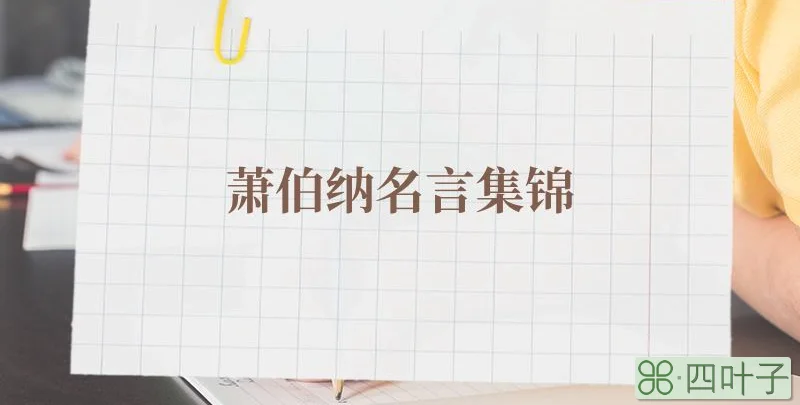 萧伯纳名言集锦
四叶子